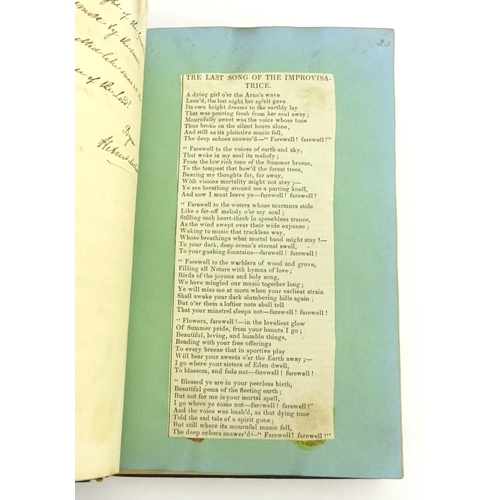 of the
made by the
of the
THE LAST SONG OF THE IMPROVISA-
TRICE.
A dying girl o'er the Arno's wave
Lean'd, the last night her spirit gave
Its own bright dreams to the earthly lay
That was pouring fresh from her soul away;
Mournfully sweet was the voice whose tone
Thus broke on the silent hours alone,
And still as its plaintive music fell,
The deep echoes answer'd—" Farewell! farewell!"
" Farewell to the voices of earth and sky,
That woke in my soul its melody;
From the low rich tone of the Summer breeze,
To the tempest that bow'd the forest trees,
Bearing my thoughts far, far away,
With visions mortality might not stay;—
Ye are breathing around me a parting knell,
And now I must leave ye—farewell! farewell!
" Farewell to the waters whose murmurs stole
Like a far-off melody o'er my soul;
Stilling each heart-throb in speechless trance,
As the wind swept over their wide expanse;
Waking to music that trackless way,
Whose breathings what mortal hand might stay!—
To your dark, deep ocean's eternal swell,
To your gushing fountains—farewell! farewell!
" Farewell to the warblers of wood and grove,
Filling all Nature with hymns of love;
Birds of the joyous and holy song,
We have mingled our music together long;
Ye will miss me at morn when your earliest strain
Shall awake your dark slumbering hills again;
But o'er them a loftier note shall tell
That your minstrel sleeps not—farewell! farewell!
" Flowers, farewell!—in the loveliest glow
Of Summer pride, from your haunts I go;
Beautiful, loving, and humble things,
Bending with your free offerings
To every breeze that in sportive play
Will bear your sweets o'er the Earth away;—
I go where your sisters of Eden dwell,
To blossom, and fade not—farewell! farewell!
" Blessed ye are in your peerless birth,
Beautiful gems of the fleeting earth;
But not for me is your mortal spell,
I go where ye come not—farewell! farewell!"
And the voice was hush'd, as that dying tone
Told the sad tale of a spirit gone;
But still where its mournful music fell,
The deep echoes answer'd—" Farewell! farewell!"